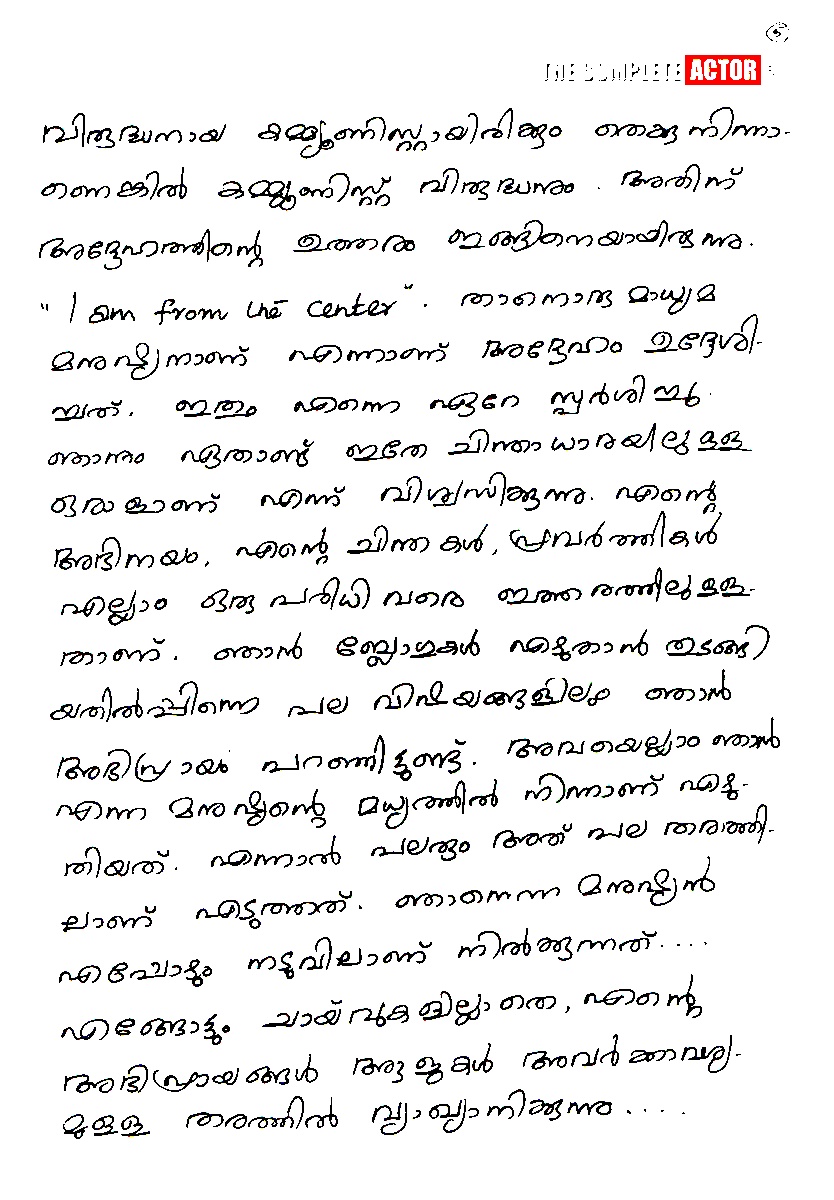 5
THE COMPLETE ACTOR
വിരുദ്ധനായ കമ്മ്യൂണിസ്റ്റായിരിക്കും തെക്കുനിന്നാ-
ണെങ്കിൽ കമ്മ്യൂണിസ്റ്റ് വിരുദ്ധനും. അതിന്
അദ്ദേഹത്തിന്റെ ഉത്തരം ഇങ്ങിനെയായിരുന്നു.
"I am from the center". താനൊരു മാധ്യമ
മനുഷ്യനാണ് എന്നാണ് അദ്ദേഹം ഉദ്ദേശി-
ച്ചത്. ഇതും എന്നെ ഏറേ സ്പർശിച്ചു.
ഞാനും ഏതാണ്ട് ഇതേ ചിന്താധാരയിലുള്ള
ഒരാളാണ് എന്ന് വിശ്വസിക്കുന്നു. എന്റെ
അഭിനയം, എന്റെ ചിന്തകൾ, പ്രവർത്തികൾ
എല്ലാം ഒരു പരിധിവരെ ഇത്തരത്തിലുള്ള-
താണ്. ഞാൻ ബ്ലോഗുകൾ എഴുതാൻ തുടങ്ങി
യതിൽപ്പിന്നെ പല വിഷയങ്ങളിലും ഞാൻ
അഭിപ്രായം പറഞ്ഞിട്ടുണ്ട്. അവയെല്ലാം ഞാൻ
എന്ന മനുഷ്യന്റെ മധ്യത്തിൽ നിന്നാണ് എഴു-
തിയത്. എന്നാൽ പലരും അത് പല തരത്തി-
ലാണ് എടുത്തത്. ഞാനെന്ന മനുഷ്യൻ
എപ്പോഴും നടുവിലാണ് നിൽക്കുന്നത്....
എങ്ങോട്ടും ചായ്‌വുകളില്ലാതെ, എന്റെ
അഭിപ്രായങ്ങൾ ആളുകൾ അവർക്കാവശ്യ-
മുള്ള തരത്തിൽ വ്യാഖ്യാനിക്കുന്നു....